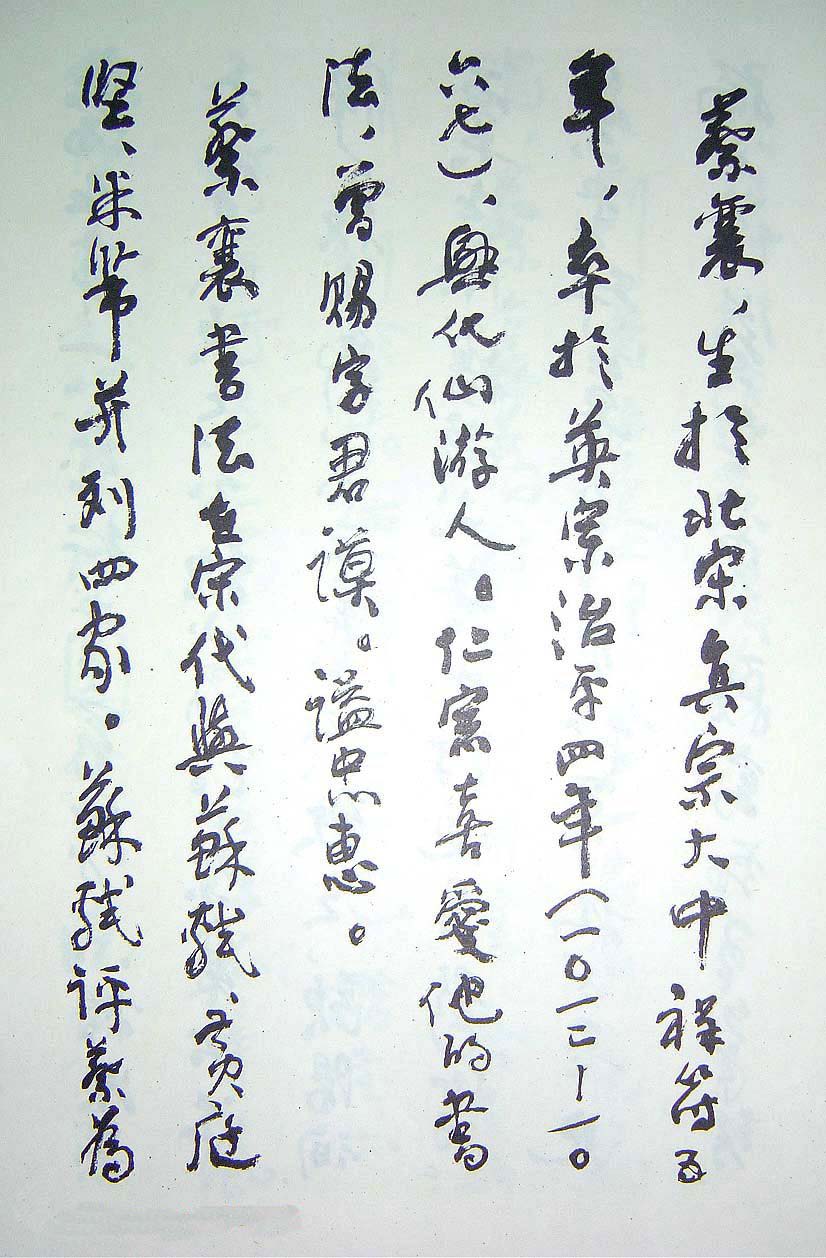 蔡襄，生於北宋真宗大中祥符五
年，卒於英宗治平四年（一〇一二—一一〇
六七）、興化仙游人。仁宗喜愛他的書
法，曾賜字君謨。謚忠惠。
蔡襄書法在宋代與蘇軾、黃庭
堅、米芾并列四家。蘇軾評蔡為